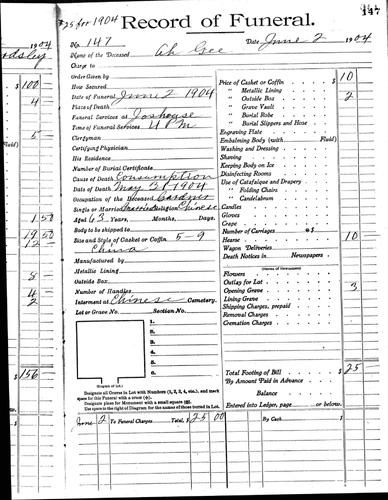 $25 for 1904 Record of Funeral. 147
No. 147 Date June 2 1904
Name of the Deceased Ah Gee
Charge to
Order Given by
How Secured
Date of Funeral June 2 1904
Place of Death
Funeral Services at Joshouse
Time of Funeral Services 4 PM
Clergyman
Certifying Physician
His Residence
Number of Burial Certificate
Cause of Death Consumption
Date of Death May 31 1904
Occupation of the Deceased
Single or Married Religion Chinese
Aged 63 Years, Months, Days.
Body to be shipped to
Size and Style of Casket or Coffin 5-9
China
Manufactured by
Metallic Lining
Outside Box
Number of Handles
Interment at Chinese Cemetery.
Lot or Grave No. Section No.
1.
2.
3.
4.
5.
6.
(Diagram of Lot.)
Designate all Graves in Lot with Numbers (1, 2, 3, 4, etc.), and mark
space for this Funeral with a cross (+).
Designate place for Monument with a small square (□).
Use space to the right of Diagram for the names of those buried in Lot.
June 2 To Funeral Charges Total, $ 25 00
Price of Casket or Coffin $ 10
" Metallic Lining
" Outside Box 2
" Grave Vault
" Burial Robe
" Burial Slippers and Hose
Engraving Plate
Embalming Body (with Fluid)
Washing and Dressing
Shaving
Keeping Body on Ice
Disinfecting Rooms
Use of Catafalque and Drapery
" Folding Chairs
" Candelabrum
Candles
Gloves
Crape
Number of Carriages @ $
Hearse 10
Wagon Deliveries
Death Notices in Newspapers
Flowers
Outlay for Lot 3
Opening Grave
Lining Grave
Shipping Charges, prepaid
Removal Charges
Cremation Charges
Total Footing of Bill $ 25
By Amount Paid in Advance
Balance
Entered into Ledger, page or below.
By Cash $
1904
$ 100
4
5
Fluid)
1 50
19 50
12
8
4 50
2
$ 156